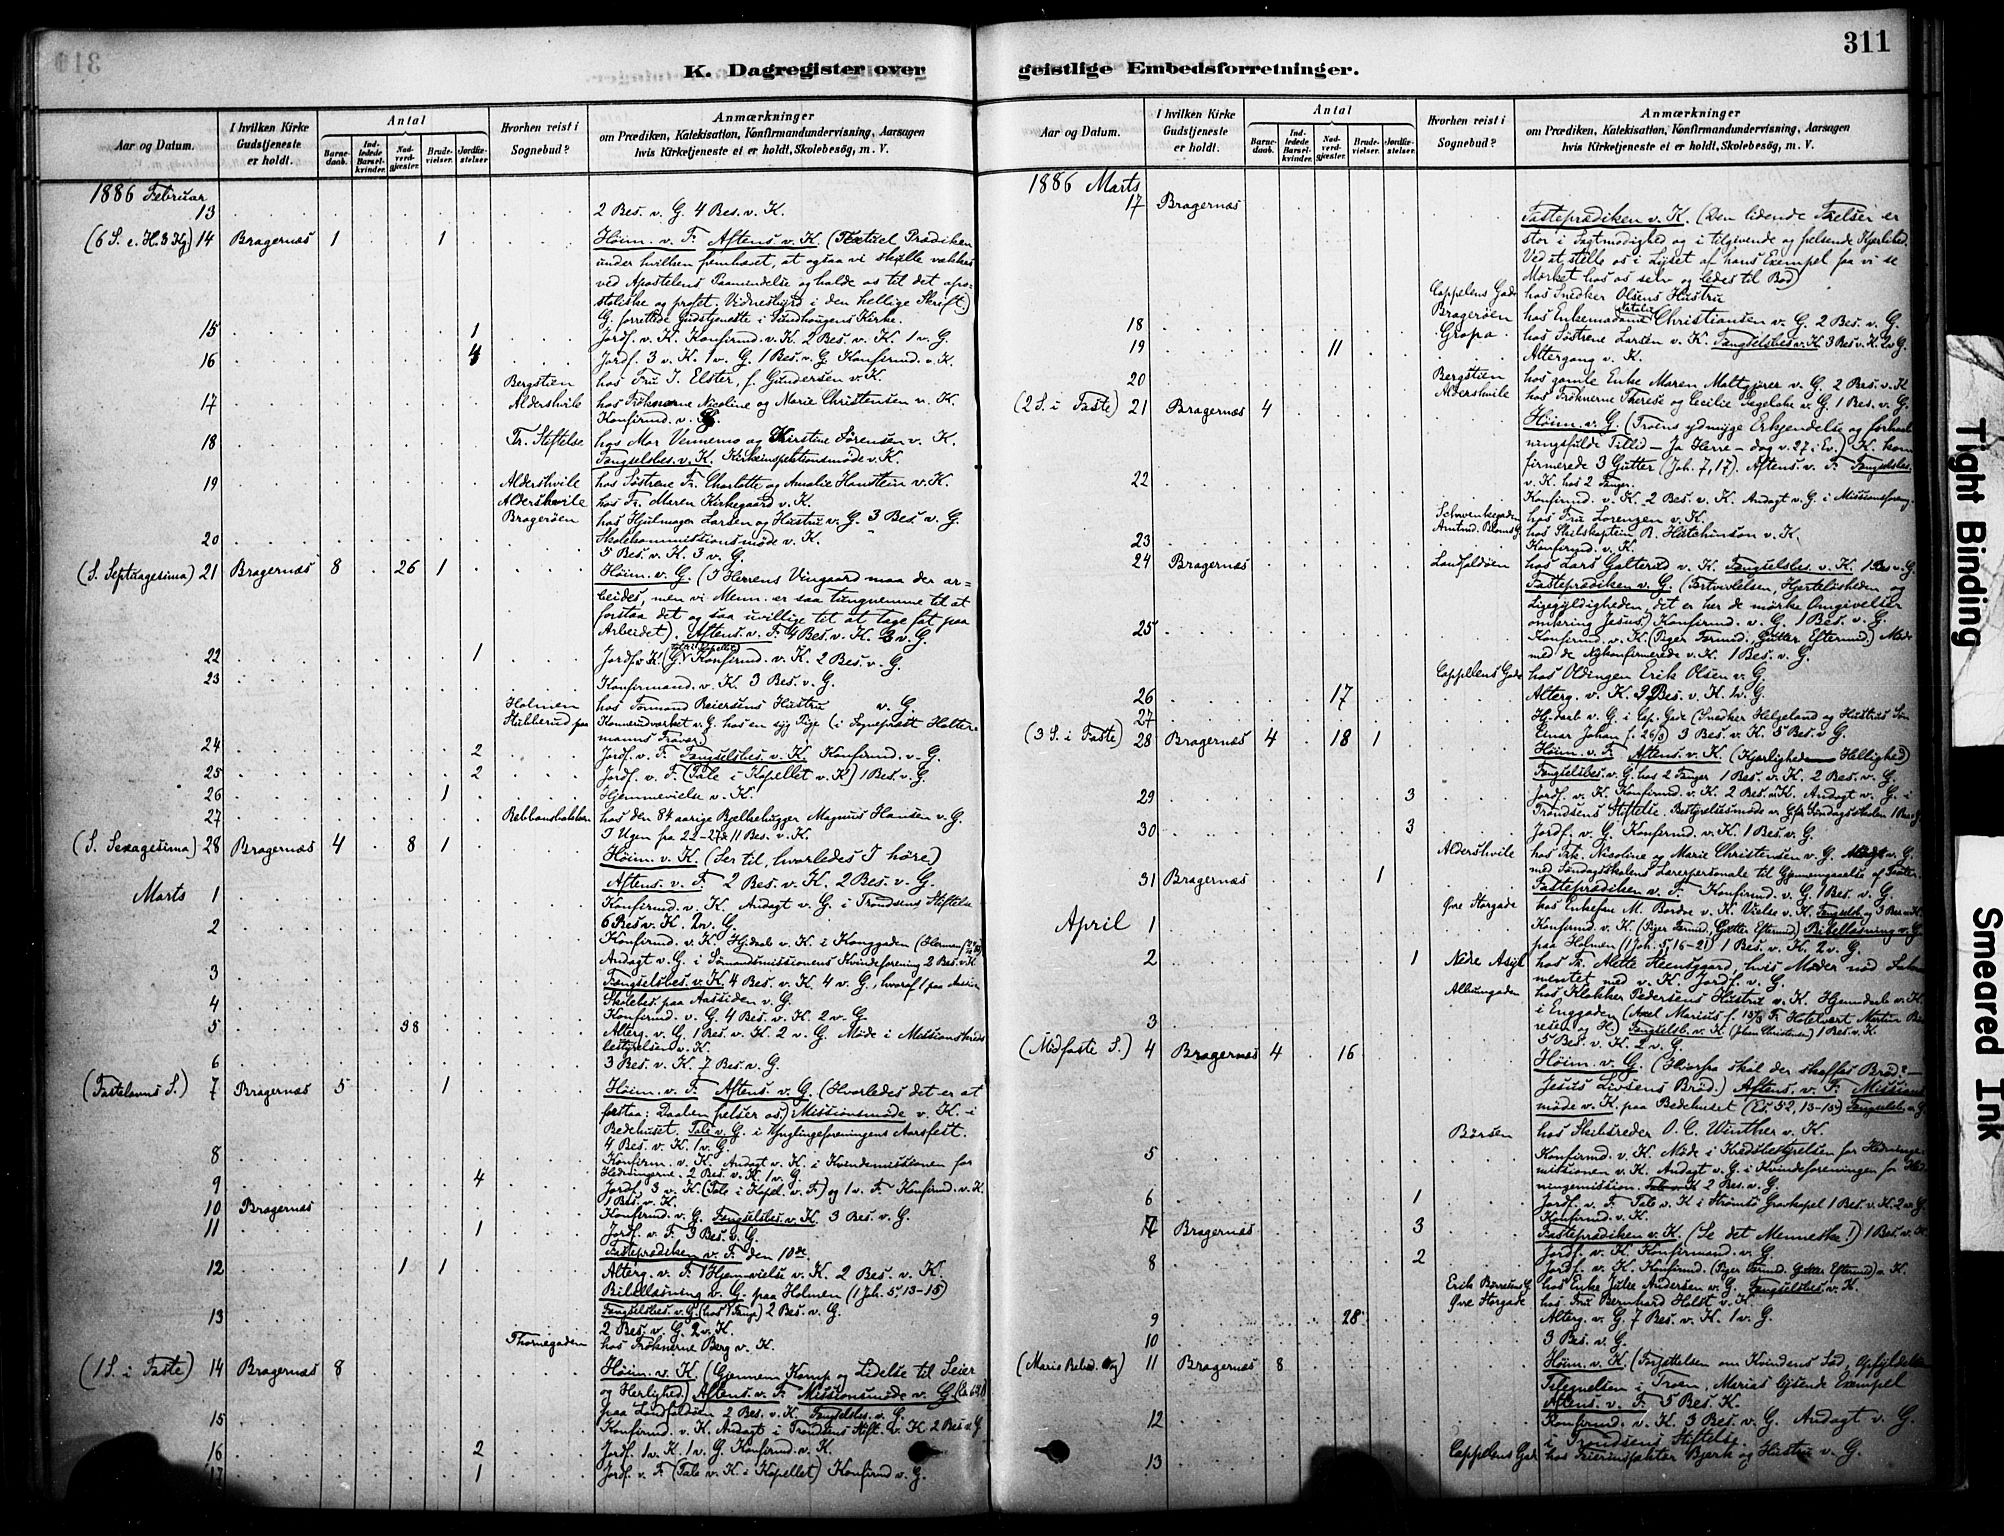 311
K. Dagregister over geistlige Embedsforretninger.
Aar og Datum.
I hvilken Kirke Gudstjeneste er holdt.
Antal
Barnedaab.
Indledede Barselkvinder.
Nadverdgjæster.
Brudevielser.
Jordfæstelser
Hvorhen reist i Sognebud?
Anmærkninger
om Prædiken, Katekisation, Konfirmandundervisning, Aarsagen
hvis Kirketjeneste ei er holdt, Skolebesøg, m. V.
1886 Februar
13 2 Bes. v. G. 4 Bes. v. K.
(6 S. e. H. 3 Kg.) 14 Bragernæs 1 1 Høim. v. F. Aftens. v. K. (Textuel Prædiken
under hvilken fremhævet, at ogsaa vi skulle vækkes
ved Apostelens Paamindelse og holde os til det apo-
stoliske og profet. Vidnesbyrd i den hellige Skrift)
G. forrettede Gudstjeneste i Sundhaugens Kirke.
15 1 Jordf. v. K. Konfirmd. v. K. 2 Bes. v. K. 1 v. G.
16 4 Jordf. 3 v. K. 1 v. G. 1 Bes. v. G Konfirmd. v. K.
Bergstien hos Fru I. Elster, f. Gundersen v. K.
17 Aldershvile hos Frøknerne Nicoline og Marie Christensen v. K.
Konfirmd. v. G.
18 Tr. Stiftelse hos Mar Vennemo og Kirstine Sørensen v. K.
Fængselsbes. v. K. Kirkeinspektionsmøde v. K.
19 Aldershvile hos Søstrene Fr. Charlotte og Amalie Handtein v. K.
Aldershvile hos Fr. Maren Kirkegaard v. K.
Bragerøen hos Hjulmager Larsen og Hustru v. G. 3 Bes. v. G.
20 Skolekommissionsmøde v. K.
5 Bes. v. K. 3 v. G.
(S. Septuagesima) 21 Bragernæs 8 26 1 Høim. v. G. (I Herrens Vingaard maa der ar-
beides, men vi Menn. er saa tungnemme til at
forstaa det og saa uvillige til at tage fat paa
Arbeidet). Aftens. v. F. 4 Bes. v. K. 3 v. G
22 1 Jordf. v. K. Konfirmd. v. K. 2 Bes. v. G.
23 Konfirmand. v. K. 3 Bes. v. G.
Holmen hos Formand Reiersens Hustru v. G.
Stubberud paa Konnerudværket v. G. hos en syg Pige (i Sognepræst Holter-
manns Fravær)
24 2 Jordf. v. F. Fængselsbes. v. K. Konfirmd. v. G.
25 2 Jordf. v. F. (Tale i Kapellet v. K) 1 Bes. v. G.
26 1 Hjemmevielse v. K.
27 Rebbansbakken hos den 84 aarige Bjelkehugger Magnus Hansen v. G.
I Ugen fra 22-27de 11 Bes. v. K.
(S. Sexagesima) 28 Bragernæs 4 8 1 Høim. v. K. (Ser til, hvorledes I høre)
Aftens. v. F. 2 Bes. v. K. 2 Bes. v. G.
Marts 1 Konfirmd. v. K. Andagt v. G. i Trondsens Stiftelse
6 Bes v. K. 2 v. G.
2 Konfirmd. v. K. Hj.daab v. K. i Konggaden
Andagt v. G. i Sømandsmissionens Kvindeforening 2 Bes. v. K
3 Fængselsbes. v. K. 4 Bes. v. K. 4 v. G., hvoraf 1 paa
Skolebes. paa Aassiden v. G.
4 Konfirmd. v. G. 4 Bes. v. K. 2 v. G.
5 38 Alterg. v. G. 1 Bes. v. K. 2 v. G. Møde i Missionskreds
bestyrelsen v. K.
6 3 Bes. v. K. 7 Bes. v. G.
(Fastelavns S.) 7 Bragernæs 5 1 Høim. v. F. Aftens. v. G. (Hvorledes det er at
forstaa: Daaben frelser os.) Missionsmøde v. K. i
Bedehuset. Tale v. G. i Ynglingeforeningens Aarsfest.
4 Bes. v. K. 1 v. G.
8 Konfirm. v. K. Andagt v. K. i Kvindemissionen for
Hedningerne. 2 Bes. v. K. 1 v. G.
9 4 Jordf. 3 v. K. (Tale i Kapel. v. F.) og 1 v. F. Konfirmd. v. K.
1 Bes. v. K.
10 Bragernæs Konfirmd. v. G. Fængselsbes. v. K. 3 Bes. v. G.
11 1 Jordf. v. F. 3 Bes. v. G.
Fasteprædiken v. F. den 10de
12 1 1 Alterg. v. F. 1 Hjemvielse v. K. 2 Bes. v. K.
Bibellæsning v. G. paa Holmen (1 Joh. 5, 13-15)
Fængselsbes. v. G. (hos 1 Fang.) 2 Bes. v. G.
13 2 Bes. v. G. 2 v. K.
Thornegaden hos Frøknerne Berg v. K.
(1 S. i Faste) 14 Bragernæs 8 Høim. v. K. (Gjennem Kamp og Lidelse til Seier
og Herlighed) Aftens. v. F. Missionsmøde v. G.
paa Landfaldøen 2 Bes. v. K. Fængselsbes. v. G.
15 Konfirmd. v. K. Andagt i Trondsens Stift. v. K. 2 Bes. v. G
16 2 Jordf. 1 v. K. 1 v. G. Konfirmd. v. K.
17 1 Jordf. v. F. (Tale v. K. i Kapellet) Konfirmd v. G.
Aar og Datum.
I hvilken Kirke Gudstjeneste er holdt.
Antal
Barnedaab.
Indledede Barselkvinder.
Nadverdgjæster.
Brudevielser.
Jordfæstelser.
Hvorhen reist i Sognebud?
Anmærkninger
om Prædiken, Katekisation, Konfirmandundervisning, Aarsagen
hvis Kirketjeneste ei er holdt, Skolebesøg, m. V.
1886 Marts
17 Bragernæs Fasteprædiken v. K. (Den lidende Frelser er
stor i Sagtmodighed og i tilgivende og frelsende Kjærlighed.
Ved at stille os i Lyset af hans Exempel faa vi se
Mørket hos os selv og ledes til Bod)
Cappelens Gade hos Snedker Olsens Hustru
18 Bragerøen hos Enkemadame Natalie Christiansen v. G. 2 Bes. v. G.
Gropa hos Søstrene Larsen v. K. Fængselsbes v. K. 3 Bes v. K. 2 v. G.
19 11 Altergang v. K.
20 Bergstien hos gamle Enke Maren Maltgjører v. G. 2 Bes. v. K
Aldershvile hos Frøknerne Therese og Cecilie v. G. 1 Bes. v. G.
(2 S. i Faste) 21 Bragernæs 4 Høim. v. G. (Troens ydmyge Erkjendelse og forhaab-
ningsfulde Tillid - Ja Herre - dog v. 27 i Ev.) K. kon-
firmerede 3 Gutter (Joh. 7, 17). Aftens. v. F. Fængselsbes.
v. K. hos 2 Fanger.
22 Konfirmd. v. K. 2 Bes. v. K. Andagt v. G. i Missionsforeng.
Schwenkegaden hos Fru Lorenzen v. K.
Amtmd. Bloms G. hos Skibskaptein R. Hutchinson v. K.
23 Konfirmd. v. K.
24 Bragernæs Landfaldøen hos Lars Galterud v. K. Fængselsbes. v. K. 1 Bes v. G.
Fasteprædiken v. G. (Fortvivlelsen, Hjerteløsheden og
Ligegyldigheden, det er her de mørke Omgivelser
omkring Jesus) Konfirmd. v. G. 1 Bes. v. G.
25 Konfirmd. v. K. (Piger Formd. Gutter Eftermd) Møde
med de Nykonfirmerede v. K. 1 Bes. v. G.
Cappelens Gade hos Oldingen Erik Olsen v. G.
26 17 Alterg. v. K. 2 Bes. v. K. 1 v. G.
27 Hj.daab v. G. i Cap. Gade (Snedker Helgeland og Hustrus Søn
Einar Johan f. 26/3) 3 Bes. v. K. 5 Bes. v G.
(3 S. i Faste) 28 Bragernæs 4 18 1 Høim. v. F. Aftens. v. K. (Kjærlighed Hellighed)
Fængselsbes. v. G. hos 2 Fanger 1 Bes. v. K. 2 Bes. v. G.
29 3 Jordf. v. K. Konfirmd. v. K. 2 Bes. v. K. Andagt v. G. i
Trondsens Stiftelse. Bestyrelsesmøde v. G. for Søndagsskolen 1 Bes v. G.
30 3 Jordf. v. G. Konfirmd. v. K. 1 Bes. v. G.
Aldershvile hos Frk. Nicoline og Marie Christensen v. G. Møde v. G.
31 Bragernæs 1 med Søndagsskolens Lærerpersonale til Gjennemgaaelse af
Fasteprædiken v. F. Konfirmd. v. G. 1 Bes. v. G.
April 1 Øvre Storgade hos Enkefru M. Bordoe v. K. Vielse v. K. Fængselsb. og 3 Bes. v. K.
Konfirmd. v. K. (Piger Formd. Gutter Eftermd) Bibellæsning v. G.
paa Holmen (1 Joh. 5, 16-21) 1 Bes. v. K. 2 v. G.
2 1 Nedre Asyl hos Fr. Alette Steensgaard, hvis Moder nød Sakra-
mentet med v. K. Jordf. v. G.
Albumgaden hos Klokker Pedersens Hustru v. K. Hjemdaab v. K.
3 i Enggaden (Axel Marius f. 13/3 Fr. Hotelvært Martin
og H.) Fængselsb. v. K. 1 Bes. v. K.
5 Bes. v. K. 2 v. G
(Midfaste S.) 4 Bragernæs 4 16 Høim. v. G. (Hvorfra skal der skaffes Brød? -
Jesus Livsens Brød.) Aftens. v. F. Missions-
møde v. K. paa Bedehuset (Es. 52, 13-15) Fængselsb. v. G
Børsen hos Skibsreder O. C. Winther v. K.
5 Konfirmd. v. K. Møde i Kredsbestyrelsen for Hedninge-
missionen v. K. Andagt v. G. i Kvindeforeningen for Hed-
ningemission. 2 Bes. v. G.
6 1 Jordf. v. F. Tale v. K i Strømsø Gravkapel 1 Bes. v. K. 2 v. G
Konfirmd. v. K.
7 Bragernæs 3 Fasteprædiken v. K. (Se det Menneske!) 1 Bes. v. K
Jordf. v. K. Konfirmand. v. G.
8 2 Jordf. v. K. Konfirmd. (Piger Formd. Gutter Eftermd) v. K.
Erik Børresens G. hos Enke Julie Andersen v. G. Fængselsbes. v. K.
Øvre Storgade hos Fru Bernhard Holst v. K.
9 28 Alterg. v. G. 7 Bes. v. K. 1 v. G.
10 3 Bes. v. G.
(Mariæ Bebud. Dg) 11 Bragernæs 8 Høim. v. K. (Forjættelsen om Kvindens Sæd, Opfyldelsen
Tilegnelsen i Troen, Marias lysende Exempel
Aftens. v. F. 5 Bes. K.
12 Konfirmd. v. K. 3 Bes. v. G. Andagt v. G.
i Trondsens Stiftelse.
13 Cappelens Gade hos Bjerk og Hustru v. G.
Tight Binding
Smeared Ink